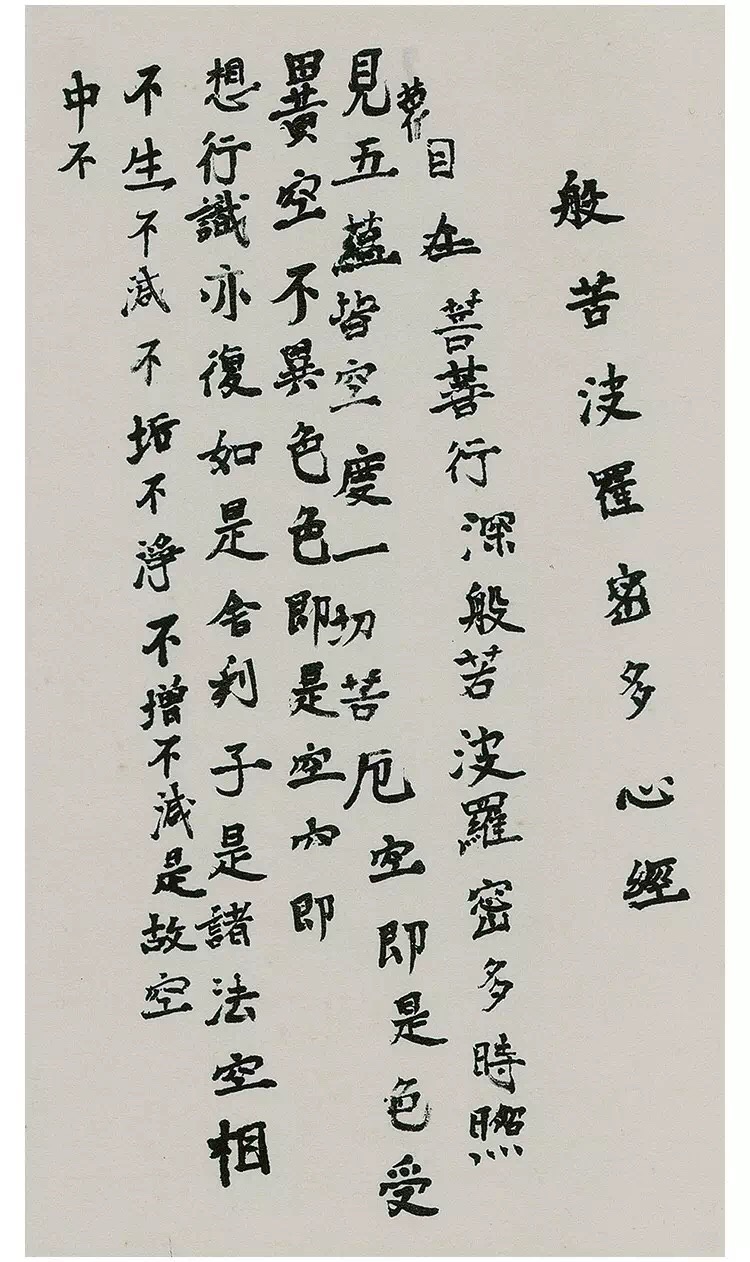 般苦波羅密多心經
目在菩菩行深般若波羅密多時照
見五蘊皆空度一切苦厄空即是色受
空不異色色即是空內即
想行識亦復如是舍利子是諸法空相
不生不滅不垢不淨不增不減是故空
中不